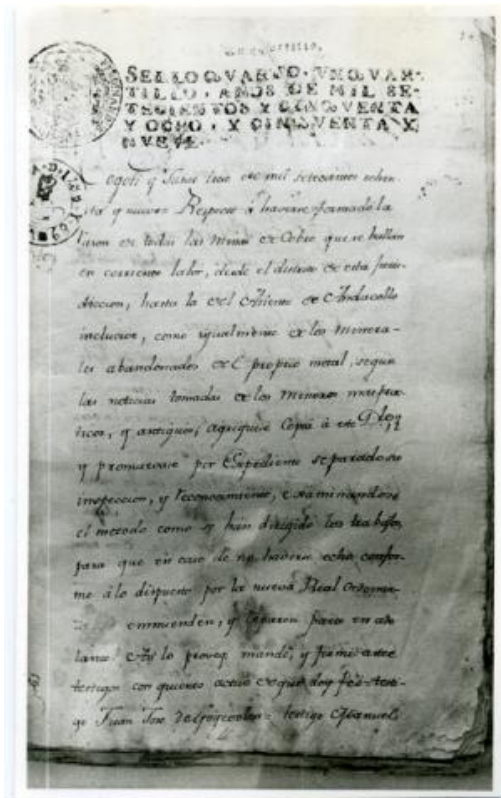 Un quartillo.
SELLO QVARTO, VN QVAR-
TILLO, AÑOS DE MIL SE-
TECIENTOS Y CINQVENTA
Y OCHO, Y CINQVENTA Y
NVEVE.
y Junio tres de mil setecientos ochen-
ta y nueve Respecto á haverse formado la
razon de todas las Minas de Cobre que se hallan
en corriente labor, desde el distrito de esta juris-
diccion, hasta la del Asiento de Andacollo
inclusive, como igualmente de los Minera-
les abandonados de el proprio metal, segun
las noticias tomadas de los Mineros mas prac-
ticos, y antiguos, agreguese Copia á este
y promuevase por Expediente separado su
inspeccion, y reconocimiento, examinandose
el metodo como se han dirigido los trabajos,
para que en caso de no haverse echo confor-
me á lo dispuesto por la nueva Real Ordenan-
enmienden, y reparen para en ade-
lante. Asi lo proveo, mandé, y firmé ante
testigos con quienes actuo de que doy fée = testi-
go Juan Jose = testigo Manuel